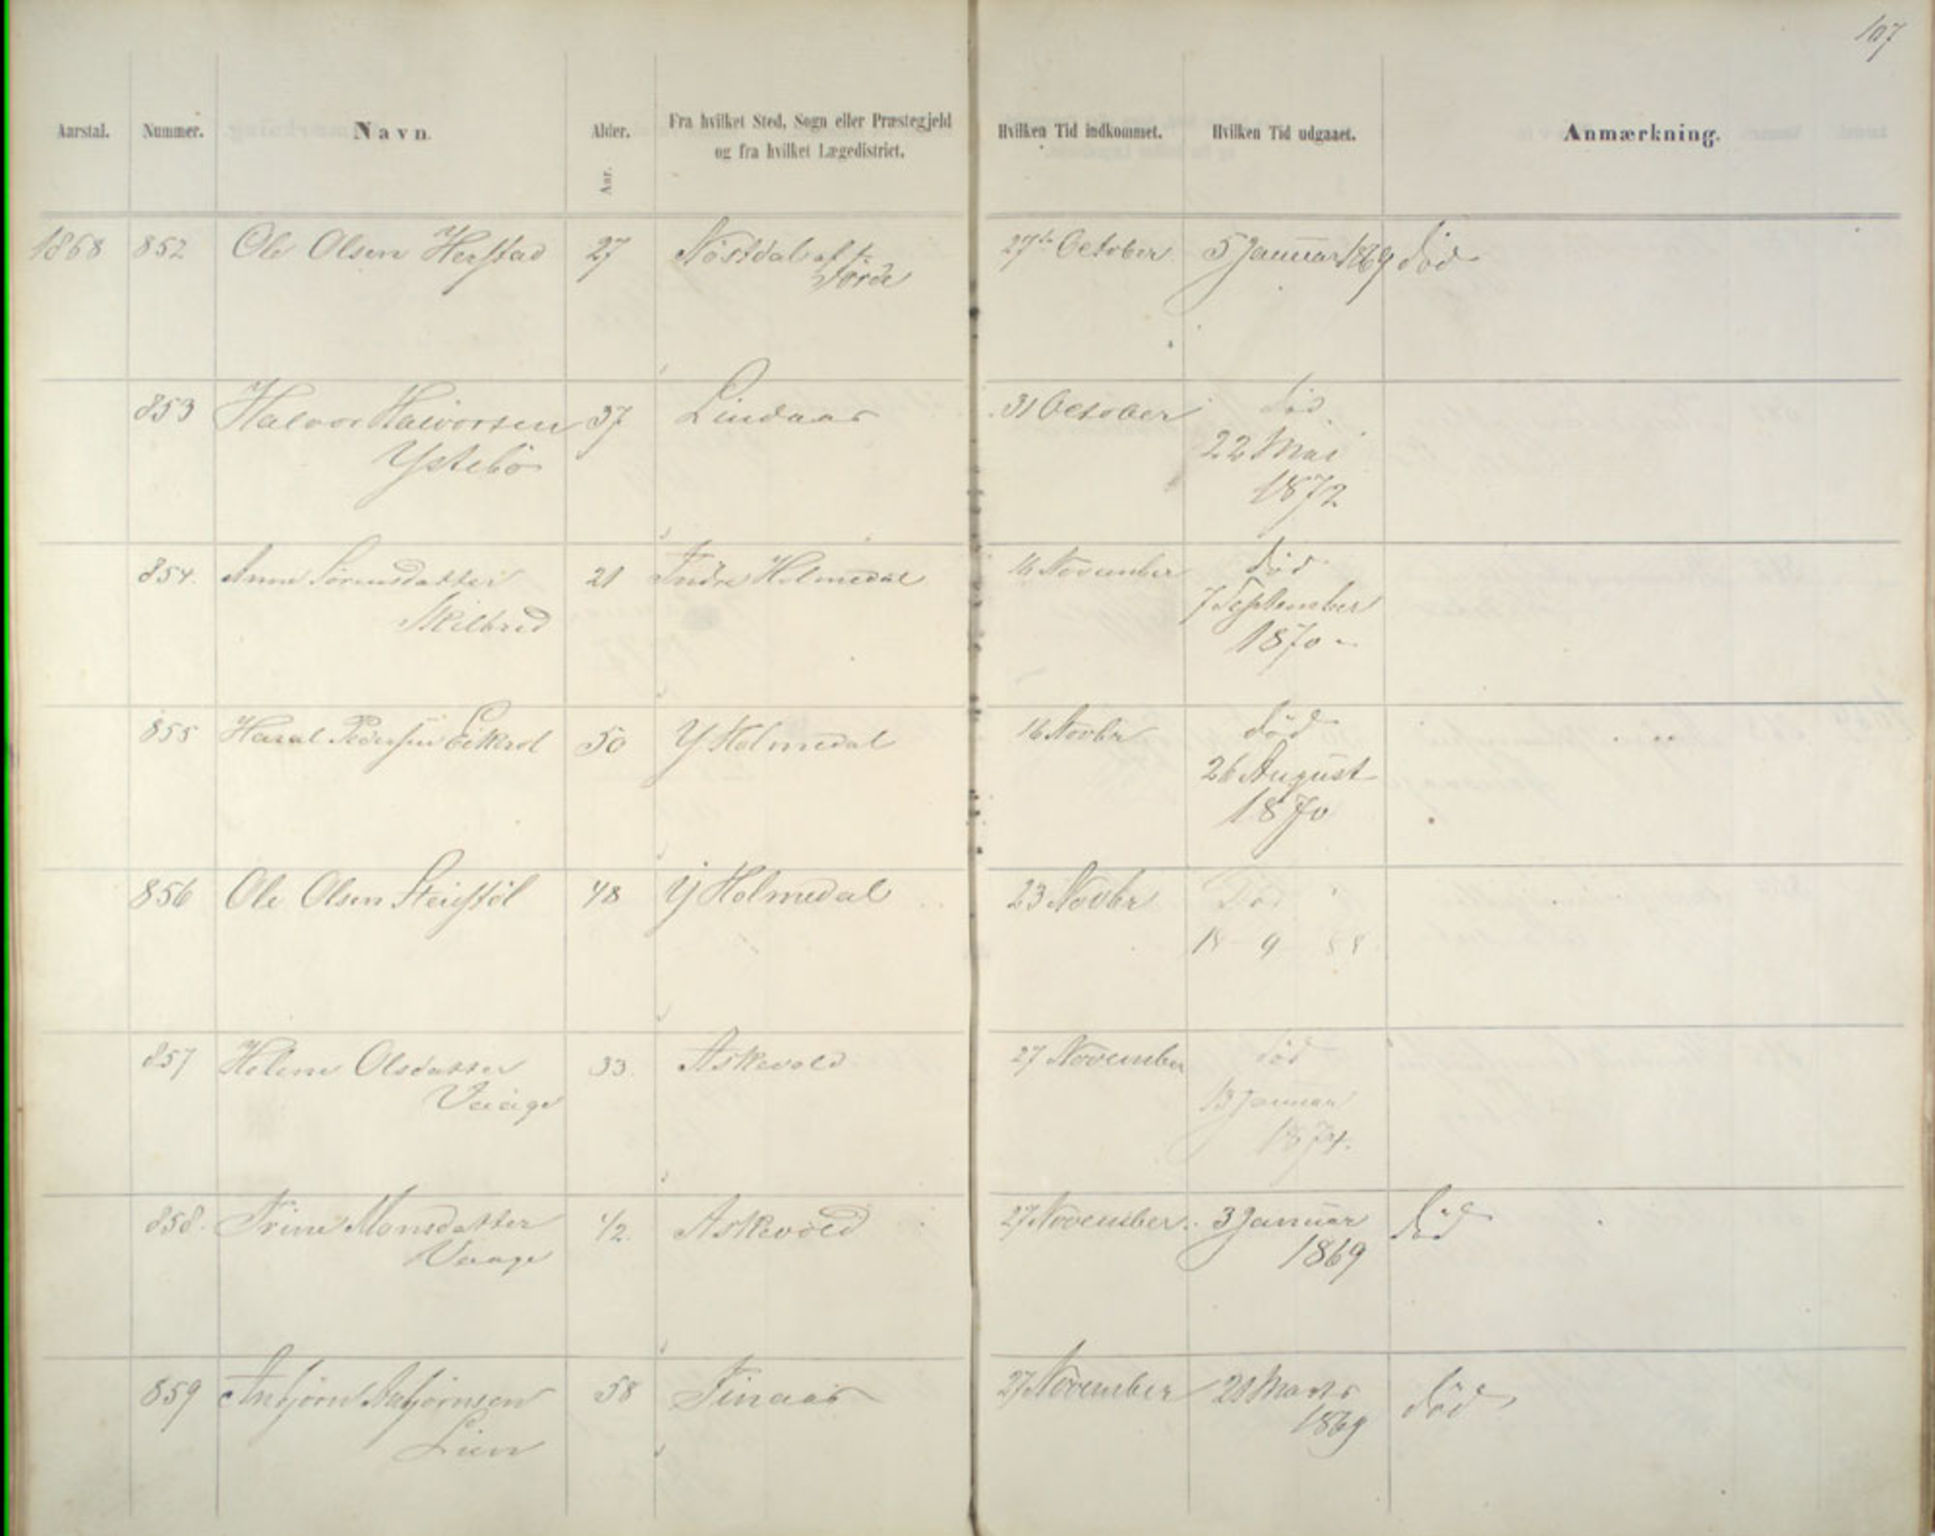 107
Aarstal. Nummer. Navn. Alder. Fra hvilket Sted, Sogn eller Præstegjeld Hvilken Tid indkommet. Hvilken Tid udgaaet. Anmærkning.
og fra hvilket Lægedistrict.
Aar.
1868 852 Ole Olsen Herstad 27 Nöstdal af 27de October 5 Januar 1869 död
Förde
853 Halvor Halvorsen 37 Lindaas 31 October död
Ystebö 22 Mai
1872
854. Anne Sörensdatter 21 Indre Holmedal 16 November död
Skilbred 7 September
1870
855 Pedersen 50 Y Holmedal 16 Novbr död
26 August
1870
856 Ole Olsen 48 Y Holmedal 23 Novbr Död
18 9 88
857 Helene Olsdatter 33. Askevold 27 November död
Vaage 13 Januar
1874.
858. Trine Monsdatter 42 Askevold 27 November. 3 Januar död
Vaage 1869
859 Anbjörn Anbjörnsen 58 Finaas 27 November 28 Marts död
Lien 1869